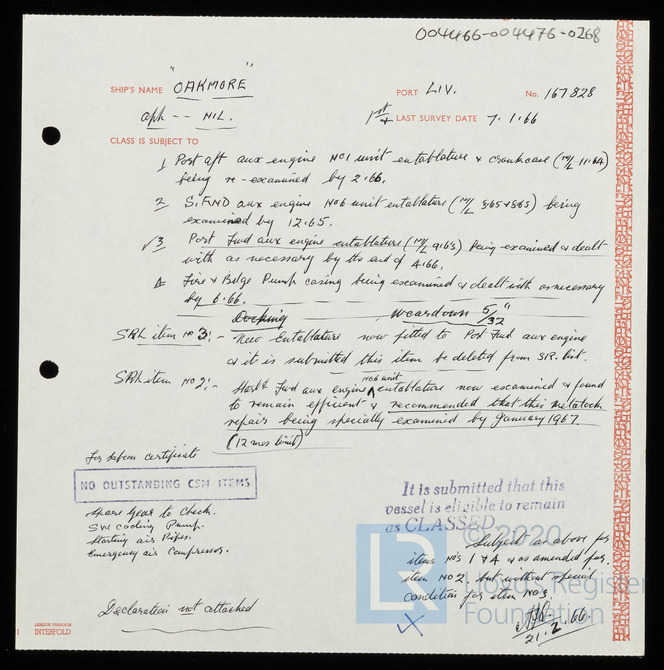 004466-004476-0268
SHIP'S NAME "OAKMORE" PORT LIV. No. 167828
aph -- NIL. 1st + LAST SURVEY DATE 7.1.66
CLASS IS SUBJECT TO
1. Port aft aux engine No1 unit entablature & crankcase (M/L 11.64)
being re-examined by 2.66.
2 S. FWD aux engine No6 unit entablature (M/L 3/65 & 8/65) being
examined by 12.65.
√3. Port Fwd aux engine entablature (M/L 9.63) being examined & dealt
with as necessary by the end of 4.66.
4 Fire & Bilge Pump casing being examined & dealt with as necessary
by 6.66.
Docking Weardown 5/32"
SRL item No 3:- New Entablature now fitted to Port Fwd aux engine
& it is submitted this item be deleted from SR. list.
SRL item No 2:- Starbd Fwd aux engine No6 unit entablature now examined & found
to remain efficient & recommended that this metalock
repair being specially examined by January 1967.
(12 mos limit)
For Safcon certificate
NO OUTSTANDING CSM ITEMS
Spare Gear to Check.
SW Cooling Pump.
Starting air Pipes.
Emergency air Compressor.
It is submitted that this
vessel is eligible to remain
as CLASSED
Subject as above for
items No's 1 & 4 & as amended for
item No 2. but without special
condition for item No 3.
21.2.66
Declaration not attached
LAMSON PARAGON
INTERFOLD
LR
© 2020
Lloyd's Register
Foundation